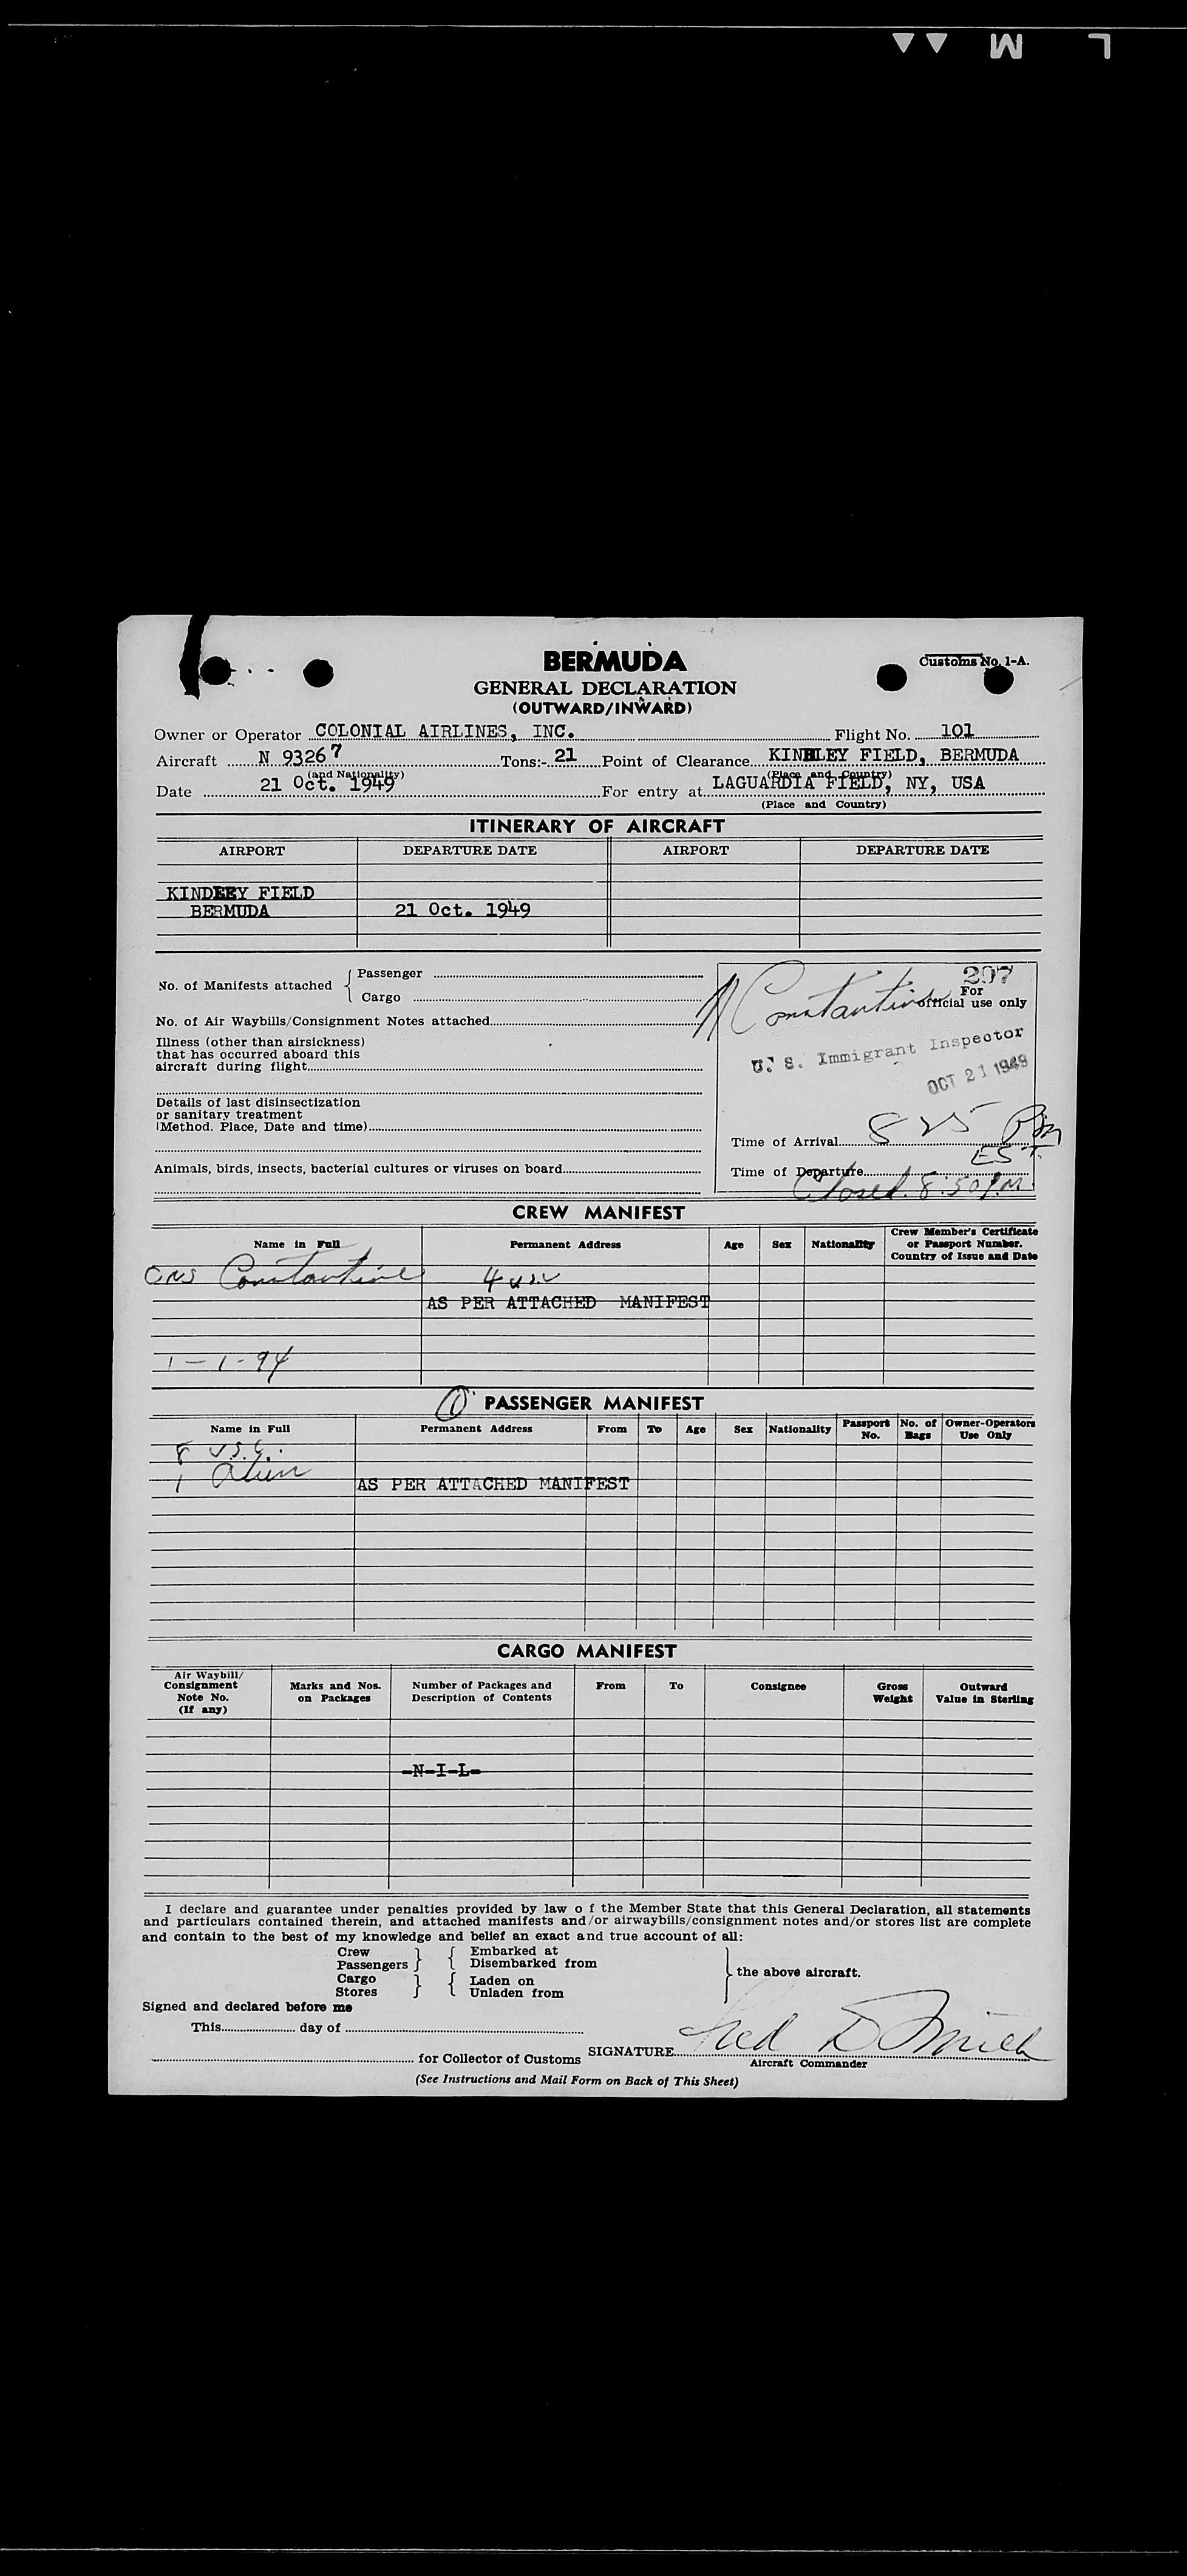 L M
BERMUDA
Customs No. 1-A.
GENERAL DECLARATION
(OUTWARD/INWARD)
Owner or Operator COLONIAL AIRLINES, INC. Flight No. 101
Aircraft N 93267 Tons:- 21 Point of Clearance KINDLEY FIELD, BERMUDA
(and Nationality) (Place and Country)
Date 21 Oct. 1949 For entry at LAGUARDIA FIELD, NY, USA
(Place and Country)
ITINERARY OF AIRCRAFT
AIRPORT DEPARTURE DATE AIRPORT DEPARTURE DATE
KINDLEY FIELD
BERMUDA 21 Oct. 1949
No. of Manifests attached Passenger
Cargo
No. of Air Waybills/Consignment Notes attached
Illness (other than airsickness)
that has occurred aboard this
aircraft during flight
Details of last disinsectization
or sanitary treatment
(Method. Place, Date and time)
Animals, birds, insects, bacterial cultures or viruses on board
207
For
official use only
Constantine
U. S. Immigrant Inspector
OCT 21 1949
Time of Arrival 8 25 Pm
EST.
Time of Departure
Closed. 8:50 P.M.
CREW MANIFEST
Name in Full Permanent Address Age Sex Nationality Crew Member's Certificate
or Passport Number.
Country of Issue and Date
Constantine 4
AS PER ATTACHED MANIFEST
1-1-94
PASSENGER MANIFEST
Name in Full Permanent Address From To Age Sex Nationality Passport No. No. of Bags Owner-Operators Use Only
8 U.S.C.
1 Alien
AS PER ATTACHED MANIFEST
CARGO MANIFEST
Air Waybill/
Consignment
Note No.
(If any)
Marks and Nos.
on Packages
Number of Packages and
Description of Contents
From To Consignee
Gross
Weight
Outward
Value in Sterling
-N-I-L-
I declare and guarantee under penalties provided by law o f the Member State that this General Declaration, all statements
and particulars contained therein, and attached manifests and/or airwaybills/consignment notes and/or stores list are complete
and contain to the best of my knowledge and belief an exact and true account of all:
Crew Embarked at
Passengers Disembarked from
the above aircraft.
Cargo Laden on
Stores Unladen from
Signed and declared before me
This day of
for Collector of Customs SIGNATURE Fred D Smith
Aircraft Commander
(See Instructions and Mail Form on Back of This Sheet)